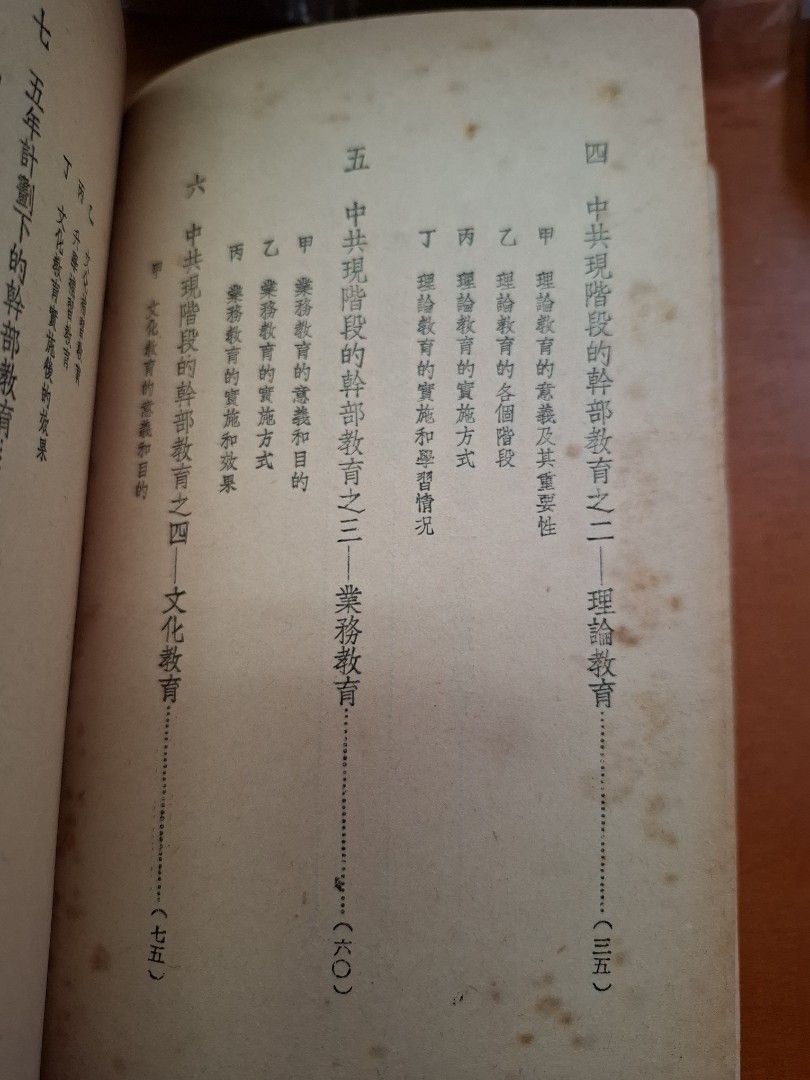 四　中共現階段的幹部教育之二—理論教育……………(三五)
甲　理論教育的意義及其重要性
乙　理論教育的各個階段
丙　理論教育的實施方式
丁　理論教育的實施和學習情況
五　中共現階段的幹部教育之三—業務教育……………(六〇)
甲　業務教育的意義和目的
乙　業務教育的實施方式
丙　業務教育的實施和效果
六　中共現階段的幹部教育之四—文化教育……………(七五)
甲　文化教育的意義和目的
乙　文化補習教育
丙　升學補習教育
丁　文化教育實施後的效果
七　五年計劃下的幹部教育